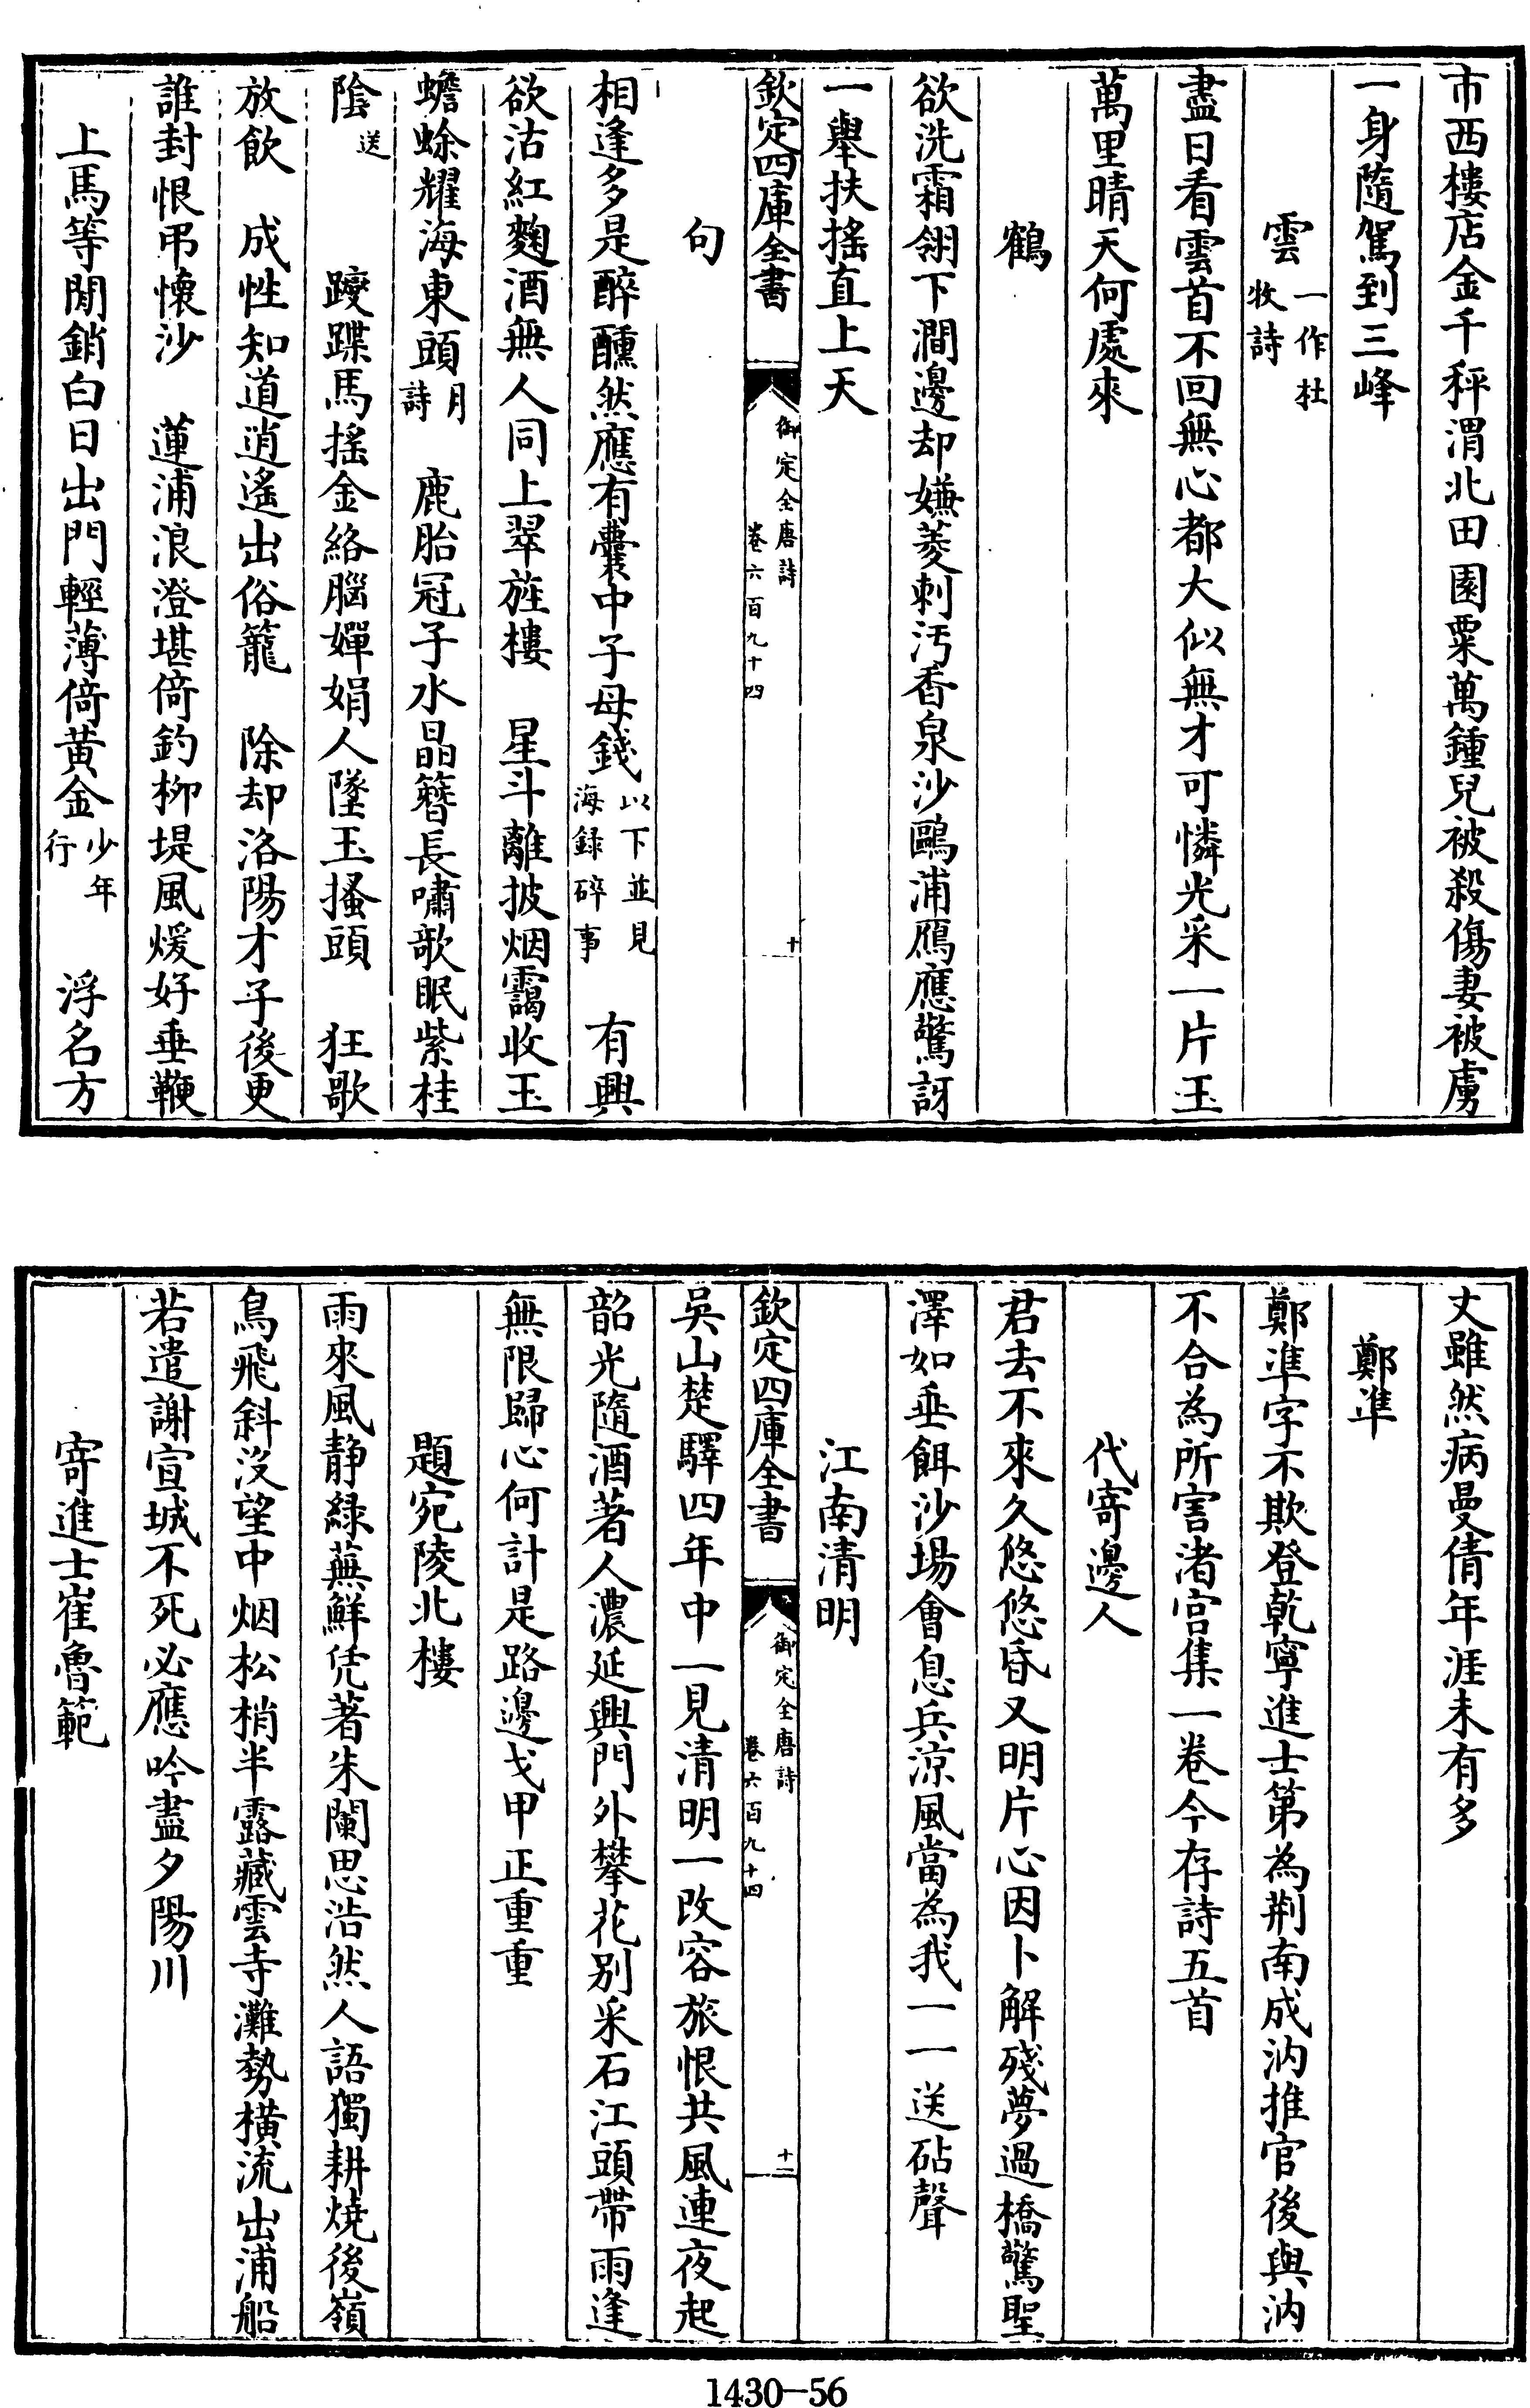 市西樓店金千秤渭北田園粟萬鍾兒被殺傷妻被虜
一身隨駕到三峰
雲一作杜牧詩
盡日看雲首不回無心都大似無才可憐光采一片玉
萬里晴天何處來
鶴
欲洗霜翎下澗邊却嫌菱刺汚香泉沙鷗浦鴈應驚訝
一舉扶搖直上天
欽定四庫全書
御定全唐詩
卷六百九十四
十
句
相逢多是醉醺然應有囊中子母錢以下並見海録碎事 有興
欲沽紅麴酒無人同上翠旌樓 星斗離披烟靄收玉
蟾蜍耀海東頭月詩 鹿胎冠子水晶簪長嘯歌眠紫桂
陰送 躞蹀馬搖金絡腦嬋娟人墜玉搔頭 狂歌
放飲 成性知道逍遙出俗籠 除却洛陽才子後更
誰封恨弔懷沙 蓮浦浪澄堪倚釣柳堤風煖好垂鞭
上馬等閒銷白日出門輕薄倚黃金少年行 浮名方
丈雖然病曼倩年涯未有多
鄭準
鄭準字不欺登乾寧進士第為荆南成汭推官後與汭
不合為所害渚宫集一卷今存詩五首
代寄邊人
君去不來久悠悠昏又明片心因卜解殘夢過橋驚聖
澤如垂餌沙場會息兵涼風當為我一一送砧聲
江南清明
欽定四庫全書
御定全唐詩
卷六百九十四
十二
吳山楚驛四年中一見清明一改容旅恨共風連夜起
韶光隨酒著人濃延興門外攀花别采石江頭帶雨逢
無限歸心何計是路邊戈甲正重重
題宛陵北樓
雨來風静緑蕪鮮凭著朱闌思浩然人語獨耕燒後嶺
鳥飛斜沒望中烟松梢半露藏雲寺灘勢橫流出浦船
若遣謝宣城不死必應吟盡夕陽川
寄進士崔魯範
1430-56